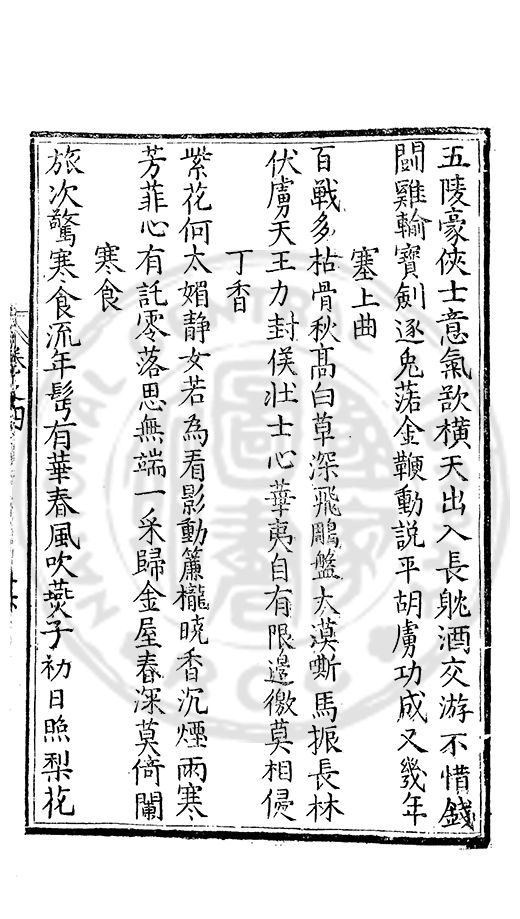 五陵豪俠士意氣欲橫天出入長躭酒交游不惜錢
鬪雞輸寶劍逐兎落金鞭動説平胡虜功成又幾年
塞上曲
百戰多枯骨秋高白草深飛鵰盤大漠嘶馬振長林
伏虜天王力封侯壯士心華夷自有限邊徼莫相侵
丁香
紫花何太媚靜女若為看影動簾櫳曉香沉煙雨寒
芳菲心有託零落思無端一采歸金屋春深莫倚闌
寒食
旅次驚寒食流年髩有華春風吹燕子初日照梨花